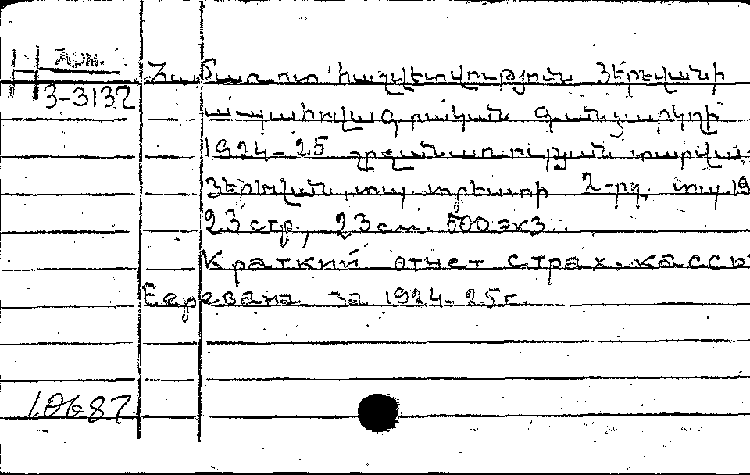 Арм.
3-3132
Համառոտ հաշվետվություն Յերեվանի
ապահովագրական գանձարկղի
1924-25 շրջանառության տարվա
Յերեվան, տպ. տրեստի 2-րդ. տպ. 19
23 стр., 23 см. 500 экз.
Краткий отчет страх. кассы
Ееревана за 1924-25 г.
10687